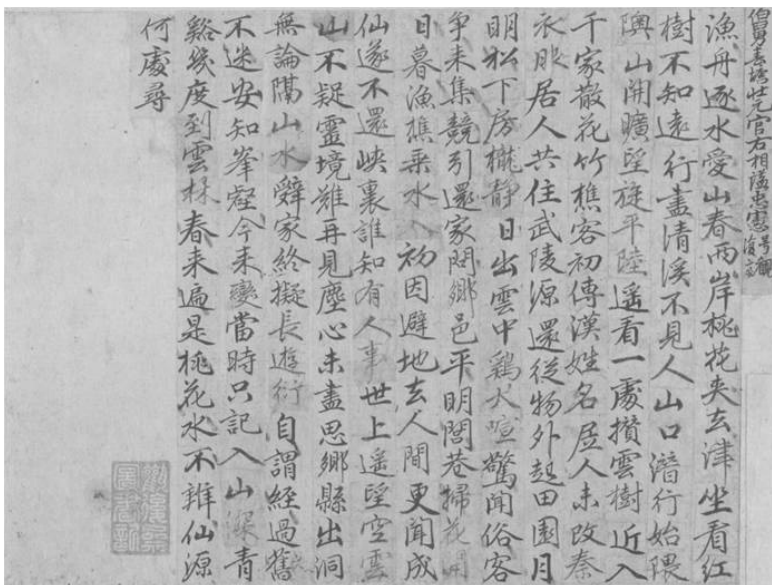 壯元官右相謚忠憲
漁舟逐水愛山春兩岸桃花夾去津坐看紅
樹不知遠行盡清溪不見人山口潛行始隈
隩山開曠望旋平陸遥看一處攢雲樹近入
千家散花竹樵客初傳漢姓名居人未改秦
衣服居人共住武陵源還從物外起田園月
明松下房櫳靜日出雲中鷄犬喧驚聞俗客
争来集競引還家問鄉邑平明閭巷掃花開
日暮漁樵乘水入初因避地去人間更聞成
仙遂不還峽裏誰知有人事世上遥望空雲
山不疑靈境難再見塵心未盡思鄉縣出洞
無論隔山水辭家終擬長遊衍自謂經過舊
不迷安知峯壑今来變當時只記入山深青
谿幾度到雲林春来遍是桃花水不辨仙源
何處尋